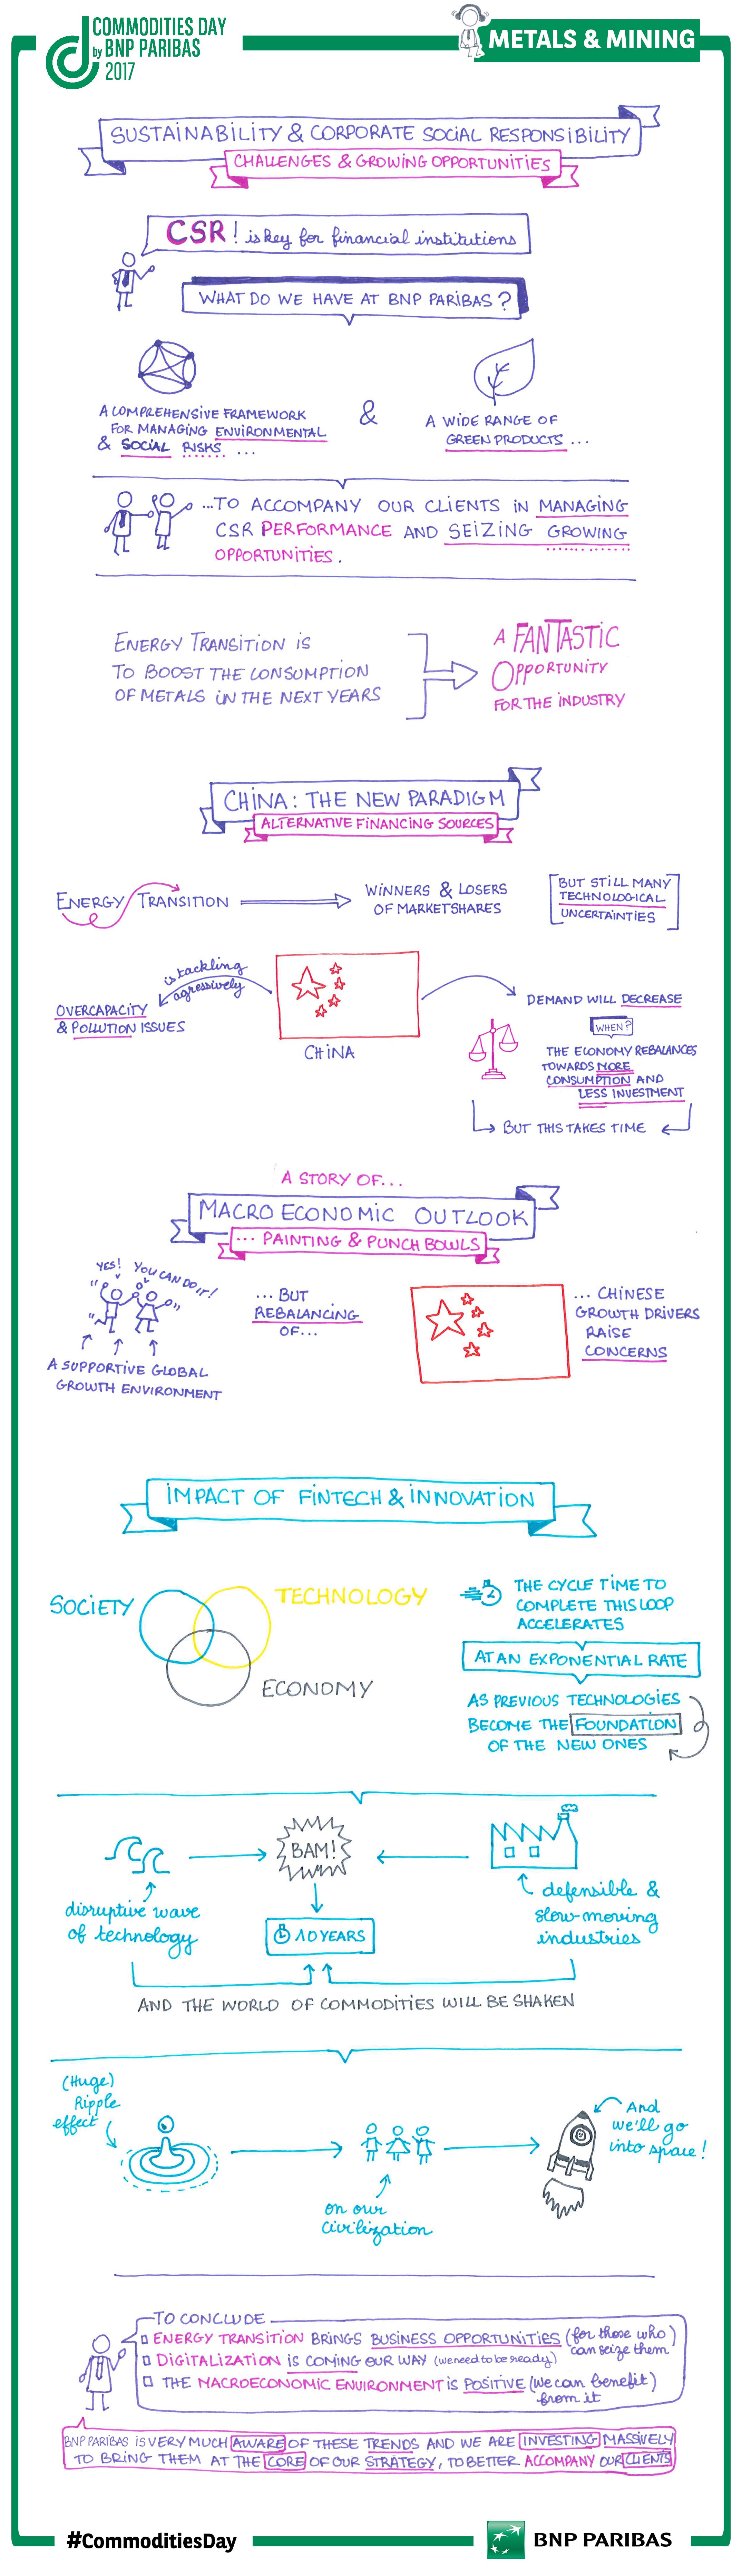 COMMODITIES DAY
by BNP PARIBAS
2017
METALS & MINING
SUSTAINABILITY & CORPORATE SOCIAL RESPONSIBILITY
CHALLENGES & GROWING OPPORTUNITIES
CSR! is key for financial institutions
WHAT DO WE HAVE AT BNP PARIBAS?
A COMPREHENSIVE FRAMEWORK
FOR MANAGING ENVIRONMENTAL
& SOCIAL RISKS ...
&
A WIDE RANGE OF
GREEN PRODUCTS ...
...TO ACCOMPANY OUR CLIENTS IN MANAGING
CSR PERFORMANCE AND SEIZING GROWING
OPPORTUNITIES.
ENERGY TRANSITION IS
TO BOOST THE CONSUMPTION
OF METALS IN THE NEXT YEARS
A FANTASTIC
OPPORTUNITY
FOR THE INDUSTRY
CHINA: THE NEW PARADIGM
ALTERNATIVE FINANCING SOURCES
ENERGY TRANSITION
WINNERS & LOSERS
OF MARKETSHARES
BUT STILL MANY
TECHNOLOGICAL
UNCERTAINTIES
is tackling
agressively
OVERCAPACITY
& POLLUTION ISSUES
CHINA
DEMAND WILL DECREASE
WHEN?
THE ECONOMY REBALANCES
TOWARDS MORE
CONSUMPTION AND
LESS INVESTMENT
BUT THIS TAKES TIME
A STORY OF...
MACRO ECONOMIC OUTLOOK
... PAINTING & PUNCH BOWLS
YES! YOU CAN DO IT!
A SUPPORTIVE GLOBAL
GROWTH ENVIRONMENT
... BUT
REBALANCING
OF...
... CHINESE
GROWTH DRIVERS
RAISE
CONCERNS
IMPACT OF FINTECH & INNOVATION
SOCIETY
TECHNOLOGY
ECONOMY
THE CYCLE TIME TO
COMPLETE THIS LOOP
ACCELERATES
AT AN EXPONENTIAL RATE
AS PREVIOUS TECHNOLOGIES
BECOME THE FOUNDATION
OF THE NEW ONES
BAM!
disruptive wave
of technology
10 YEARS
defensible &
slow-moving
industries
AND THE WORLD OF COMMODITIES WILL BE SHAKEN
(Huge)
Ripple
effect
on our
civilization
And
we'll go
into space!
TO CONCLUDE
ENERGY TRANSITION BRINGS BUSINESS OPPORTUNITIES (for those who can seize them)
DIGITALIZATION IS COMING OUR WAY (we need to be ready)
THE MACROECONOMIC ENVIRONMENT IS POSITIVE (we can benefit from it)
BNP PARIBAS IS VERY MUCH AWARE OF THESE TRENDS AND WE ARE INVESTING MASSIVELY
TO BRING THEM AT THE CORE OF OUR STRATEGY, TO BETTER ACCOMPANY OUR CLIENTS
#CommoditiesDay
BNP PARIBAS